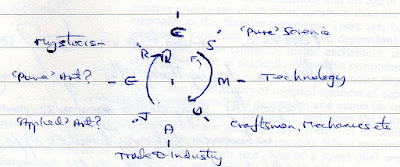 C
Mystics - R R S 'Pure' Science
'Pure' Art? - E I M - Technology
'Applied' Art? J Craftsmen, Mechanics etc
A
Trade & Industry